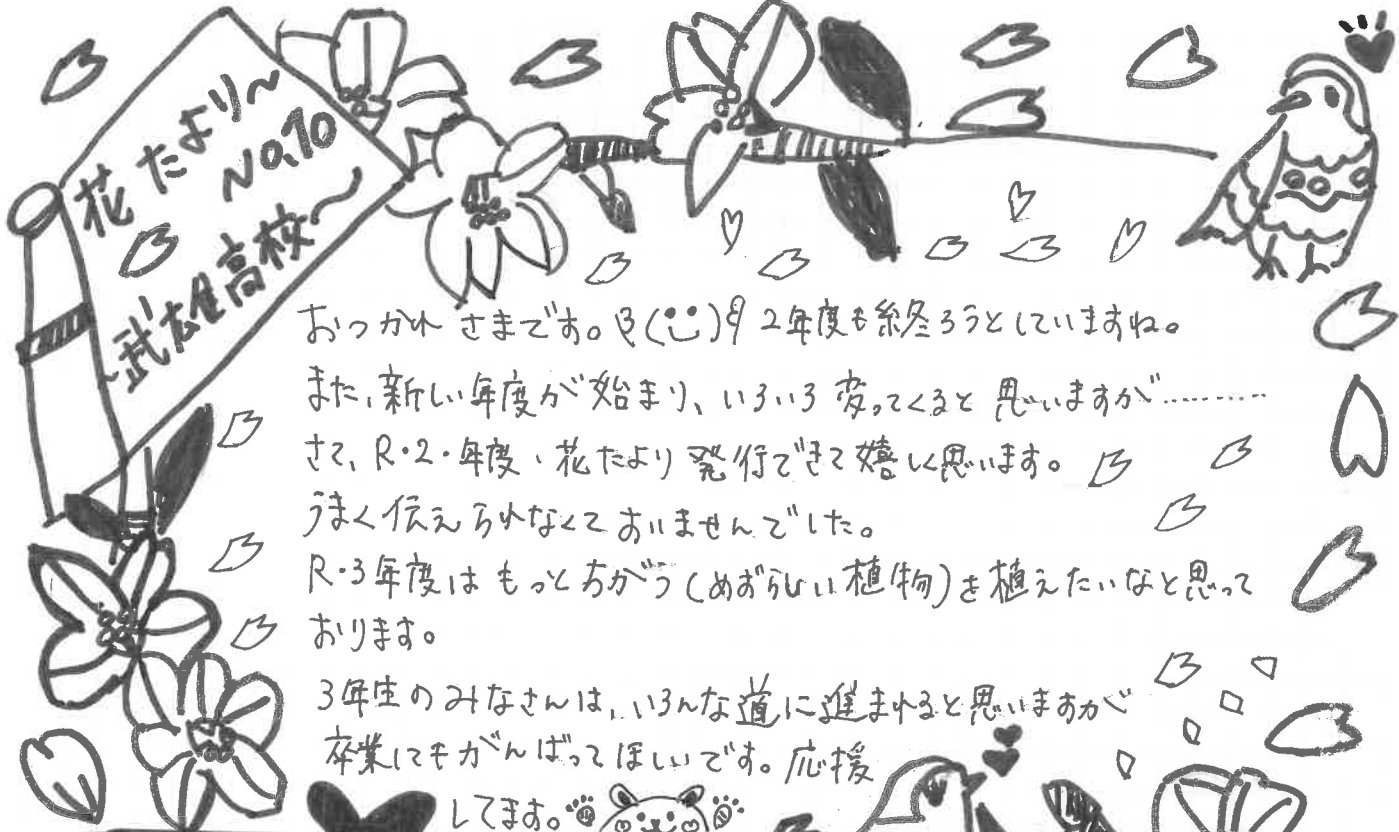 花たより~
No.10
~武雄高校~
おつかれさまです。(••)2年度も終ろうとしていますね。
また、新しい年度が始まり、いろいろ変ってくると思いますが…………
さて、R・2・年度、花たより発行できて嬉しく思います。
うまく伝えられなくてすいませんでした。
R・3年度はもっとちがう(めずらしい植物)を植えたいなと思って
おります。
3年生のみなさんは、いろんな道に進まれると思いますが
卒業してもがんばってほしいです。応援
してます。